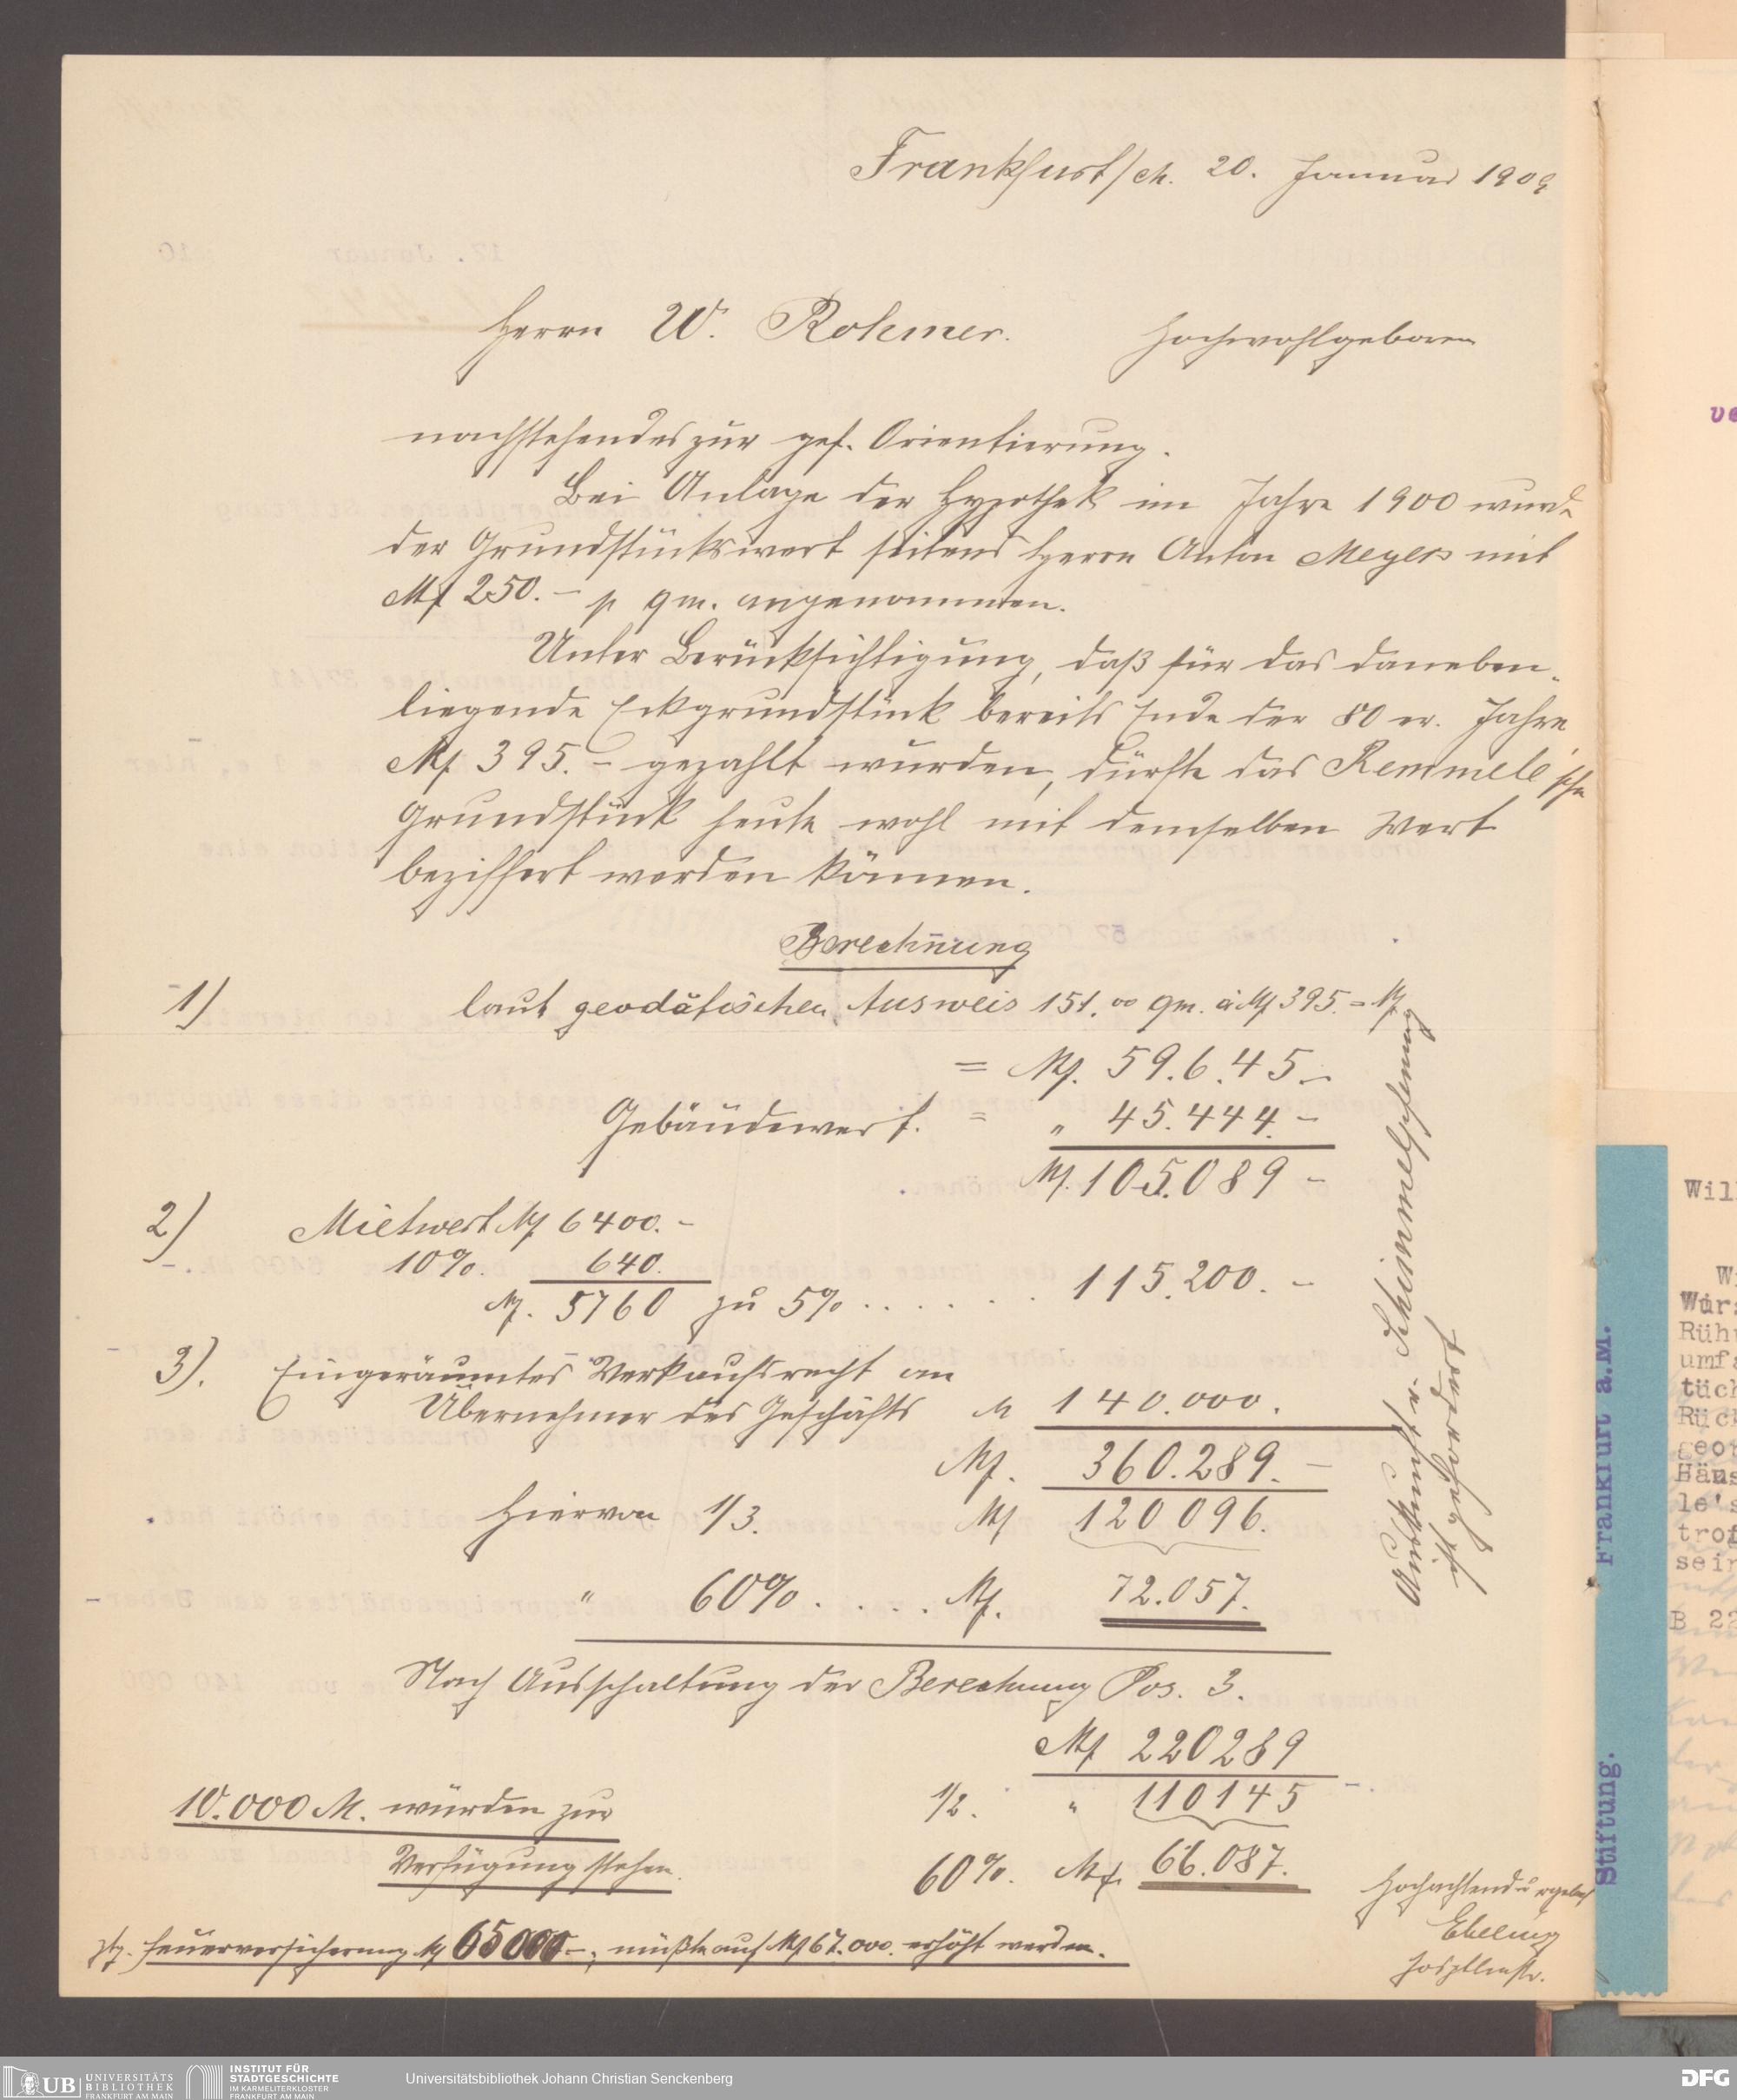 Frankfurt/M. 20. Januar 1909
Herrn W. Rohmer. Hochwohlgeboren
nachstehendes zur gef. Orientierung.
Bei Anlage der Hypothek im Jahre 1900 wurde
der Grundstückswert seitens Herrn Anton Meyers mit
Mk 250.– p qm. angenommen.
Unter Berücksichtigung, daß für das daneben-
liegende Eckgrundstück bereits Ende der 80 er. Jahre
Mk. 395.– gezahlt wurden, dürfte das Remmele'sche
Grundstück heute wohl mit demselben Wert
beziffert werden können.
Berechnung
1) laut geodätischen Ausweis 151.00 qm. à Mk 395. = Mk
= Mk. 59.645.–
Gebäudewert. = " 45.444.–
Mk. 105.089 –
2) Mietwert Mk 6400.–
10%. 640.
Mk. 5760 zu 5% . . . . . . 115.200.–
3). Eingeräumtes Verkaufsrecht an
Übernehmer des Geschäfts M 140.000.
Mk. 360.289.–
Hiervon 1/3. Mk 120096.
" 60% . . . . Mk. 72.057.
Nach Ausschaltung der Berechnung Pos. 3.
Mk 220289
1/2. " 110145 –.
60%. Mk. 66.087.
10.000 M. würden zur
Verfügung stehen.
Auskunft v. Schimmelpfennig
ist gefordert
Hochachtend u
Ebeling
ztg. Feuerversicherung Mk 65000.–; müßte auf Mk 67.000. erhöht werden.
ve
Will
Wi
Wür
Rüh
umfa
tüch
Rück
geor
Häus
le's
trof
sein
B 22
Frankfurt a.M.
Stiftung.
UB UNIVERSITÄTS
BIBLIOTHEK
FRANKFURT AM MAIN
INSTITUT FÜR
STADTGESCHICHTE
IM KARMELITERKLOSTER
FRANKFURT AM MAIN
Universitätsbibliothek Johann Christian Senckenberg
DFG